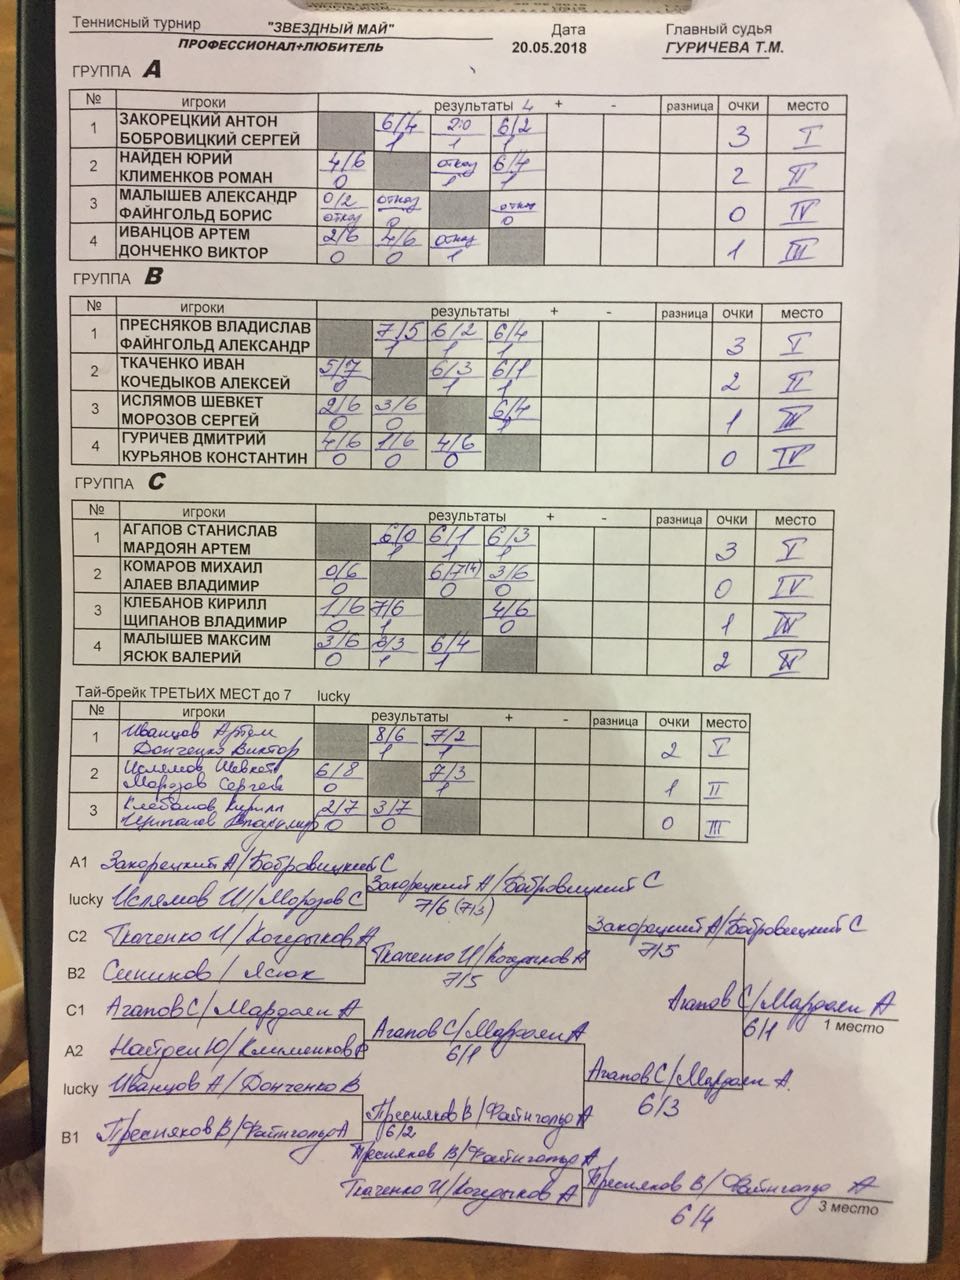 Теннисный турнир "ЗВЕЗДНЫЙ МАЙ" Дата Главный судья
ПРОФЕССИОНАЛ+ЛЮБИТЕЛЬ 20.05.2018 ГУРИЧЕВА Т.М.
ГРУППА A
№ игроки результаты 4 + - разница очки место
1 ЗАКОРЕЦКИЙ АНТОН 6/4 2:0 6/2
БОБРОВИЦКИЙ СЕРГЕЙ 1 1 1 3 I
2 НАЙДЕН ЮРИЙ 4/6 отказ 6/4
КЛИМЕНКОВ РОМАН 0 1 1 2 II
3 МАЛЫШЕВ АЛЕКСАНДР 0/2 отказ отказ
ФАЙНГОЛЬД БОРИС отказ 0 0 0 IV
4 ИВАНЦОВ АРТЕМ 2/6 4/6 отказ
ДОНЧЕНКО ВИКТОР 0 0 1 1 III
ГРУППА B
№ игроки результаты + - разница очки место
1 ПРЕСНЯКОВ ВЛАДИСЛАВ 7/5 6/2 6/4
ФАЙНГОЛЬД АЛЕКСАНДР 1 1 1 3 I
2 ТКАЧЕНКО ИВАН 5/7 6/3 6/1
КОЧЕДЫКОВ АЛЕКСЕЙ 0 1 1 2 II
3 ИСЛЯМОВ ШЕВКЕТ 2/6 3/6 6/4
МОРОЗОВ СЕРГЕЙ 0 0 1 1 III
4 ГУРИЧЕВ ДМИТРИЙ 4/6 1/6 4/6
КУРЬЯНОВ КОНСТАНТИН 0 0 0 0 IV
ГРУППА C
№ игроки результаты + - разница очки место
1 АГАПОВ СТАНИСЛАВ 6/0 6/1 6/3
МАРДОЯН АРТЕМ 1 1 1 3 I
2 КОМАРОВ МИХАИЛ 0/6 6/7(4) 3/6
АЛАЕВ ВЛАДИМИР 0 0 0 0 IV
3 КЛЕБАНОВ КИРИЛЛ 1/6 7/6 4/6
ЩИПАНОВ ВЛАДИМИР 0 1 0 1 III
4 МАЛЫШЕВ МАКСИМ 3/6 6/3 6/4
ЯСЮК ВАЛЕРИЙ 0 1 1 2 II
Тай-брейк ТРЕТЬИХ МЕСТ до 7 lucky
№ игроки результаты + - разница очки место
1 Иванцов Артем 8/6 7/2
Донченко Виктор 1 1 2 I
2 Ислямов Шевкет 6/8 7/3
Морозов Сергей 0 1 1 II
3 Клебанов Кирилл 2/7 3/7
Щипанов Владимир 0 0 0 III
A1 Закорецкий А/Бобровицкий С
Закорецкий А/Бобровицкий С
lucky Ислямов Ш/Морозов С
7/6 (7/3)
Закорецкий А/Бобровицкий С
C2 Ткаченко И/Кочедыков А
7/5
Ткаченко И/Кочедыков А
B2 Сиников / Ясюк
7/5
Агапов С/Мардоян А
C1 Агапов С/Мардоян А
1 место
6/1
Агапов С/Мардоян А
A2 Найден Ю/Клименков Р
6/1
lucky Иванцов А/Донченко В
Агапов С/Мардоян А.
6/3
Пресняков В/Файнгольд А
B1 Пресняков В/Файнгольд А
6/2
Пресняков В/Файнгольд А
Ткаченко И/Кочедыков А
Пресняков В/Файнгольд А
3 место
6/4